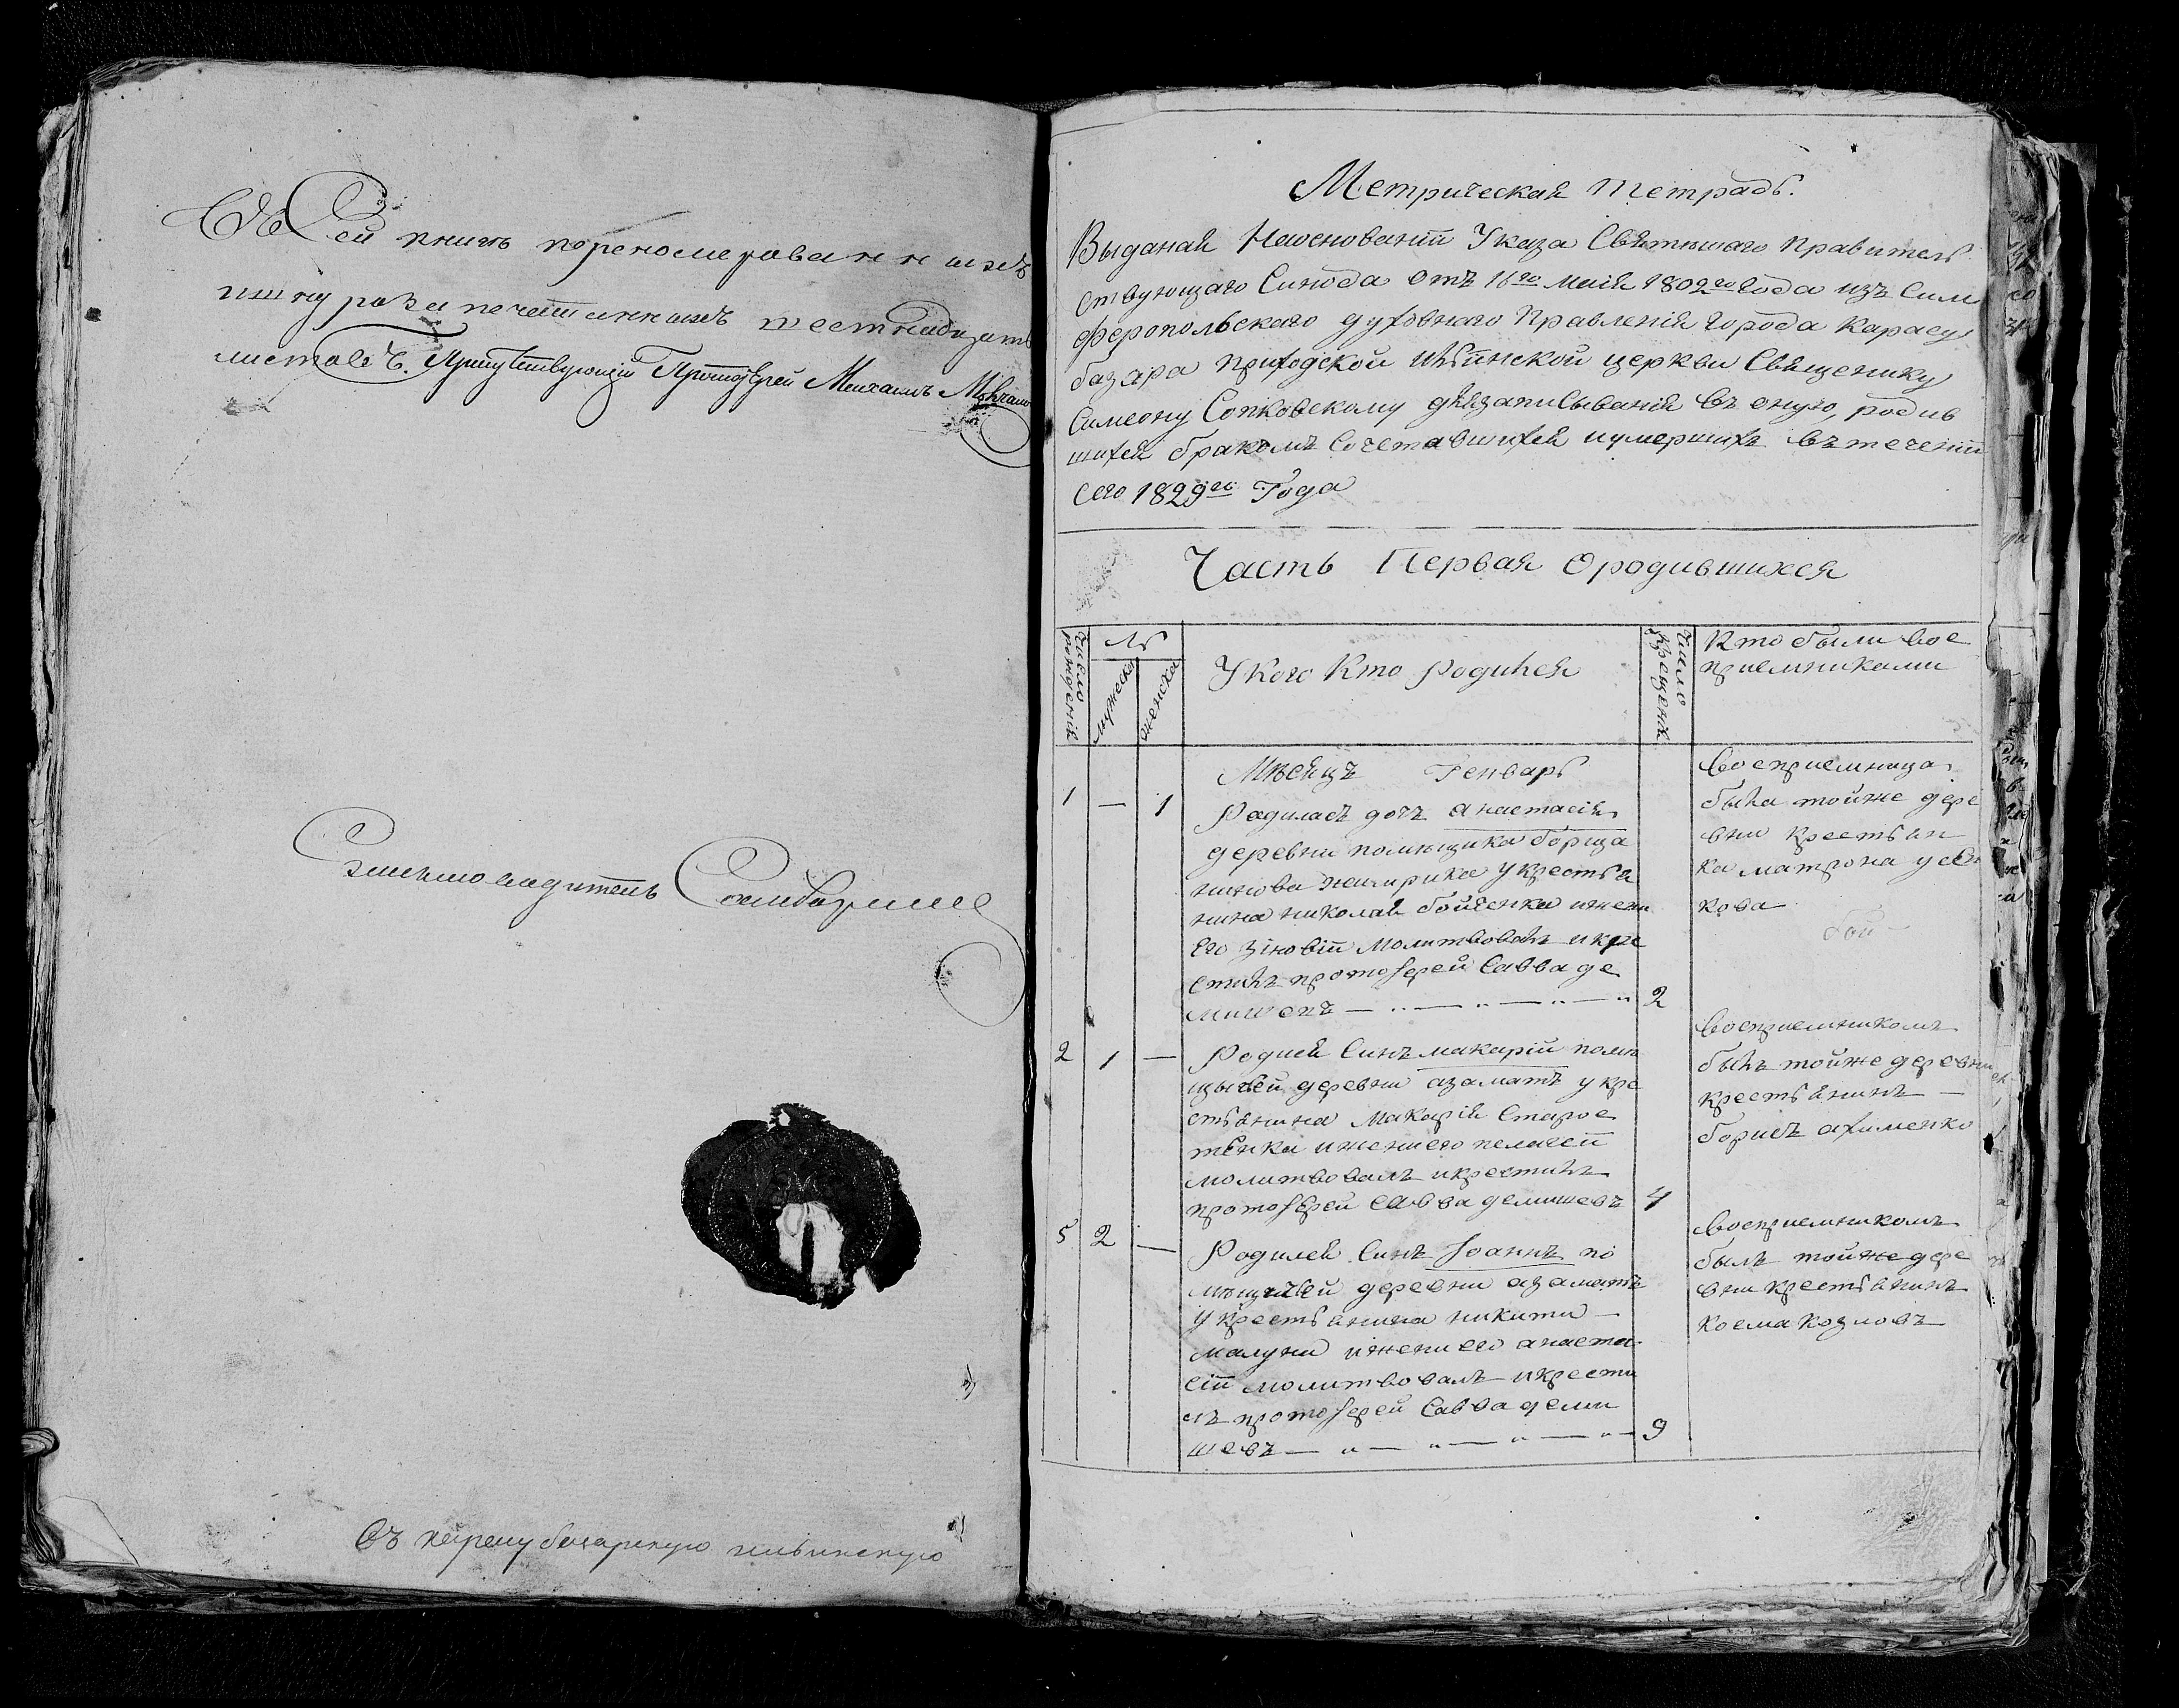 Въ Сей книгѣ переномерованныхъ
и шнурозапечатанныхъ шестнадцать
листовъ. Присутствующій Протоіерей Михаилъ
Письмоводитель
Въ карасубазарскую ильинскую
Метрическая тетрадь.
Выданая Наоснованіи Указа Святѣшаго Правитель
ствующаго Синода отъ 16го маія 1802го года изъ Сим
феропольскаго духовнаго Правленія города Карасу
базара приходской Ильинской церкви Священику
Симеону Сопковскому длязаписыванія въ оную, родив
шихся бракомъ сочетавшихся иумершихъ втеченіи
сего 1829го Года
Часть Первая Ородившихся
Число рожденія
№
мужеска
женска
Укого Кто родился
Число крещенія
Кто были вос
приемниками
Мѣсяцъ Генварь
1 — 1 Радиласъ дочъ анастасія
деревни помѣщика борща
нина николая бойченка ижени
его зіновіи молитвовалъ икре
стилъ протоіерей Савва де
мишевъ — 2
Восприемница
была тойже дере
вни крестьян
ка матрона
кова
бой
2 1 — Родися Синъ макарій помѣ
щычей деревни азаматъ укре
стьянина Макарія Старос
тенки ижениего пелагеи
молитвовалъ икрестилъ
протоіерей савва демишевъ 4
Восприемникомъ
былъ тойже деревни
крестьянинъ —
борисъ ахименко
5 2 — Родился Синъ Іоаннъ по
мѣщичьей деревни азаматъ
укрестьянина никити —
малуни ижени его анаста
сіи молитвовалъ икрести
лъ протоіерей Савва деми
шевъ — 9
Восприемникомъ
былъ тойже дере
вни крестьянинъ
косма козловъ